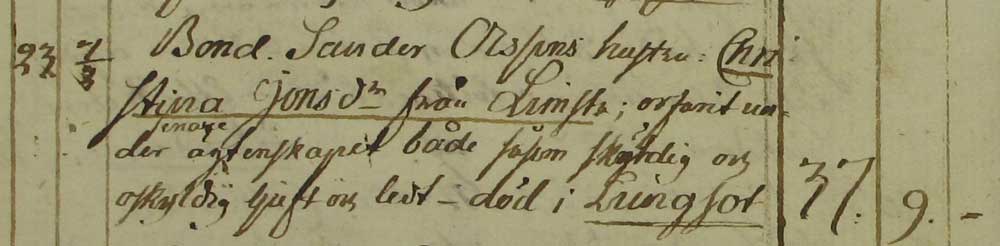 22 7/3 Bond. Sander Olssons hustru: Chri
stina Jonsdr från Limsta; erfarit un-
senare
der ägtenskapet både såsom skyldig och
oskyldig ljuft och ledt - död i Lungsot 37. 9. -